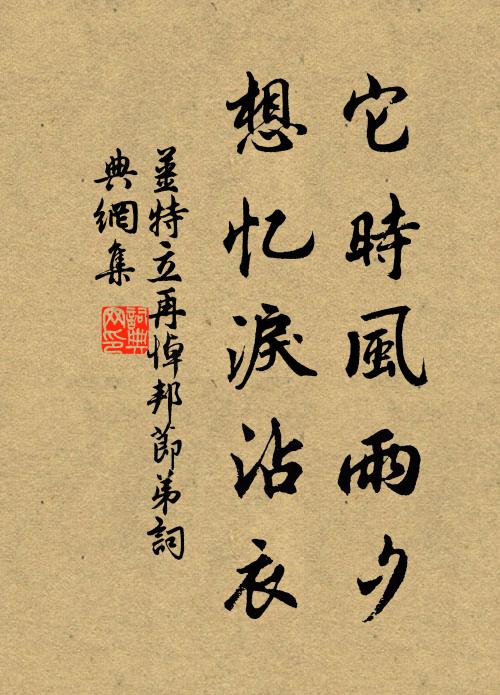 它時風雨夕
想忆淚沾衣
薑特立再悼邦節弟詞
典網集
詞典
网印